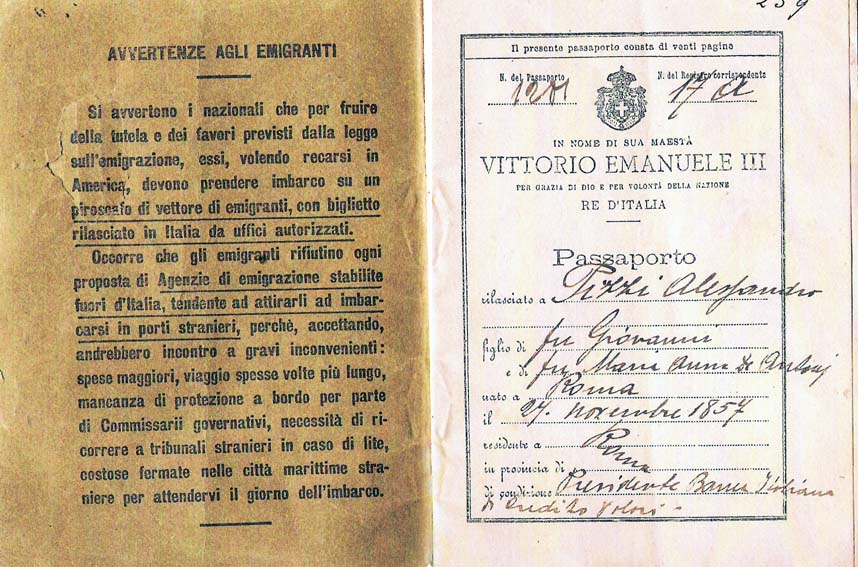 AVVERTENZE AGLI EMIGRANTI
Si avvertono i nazionali che per fruire
della tutela e dei favori previsti dalla legge
sull'emigrazione, essi, volendo recarsi in
America, devono prendere imbarco su un
piroscafo di vettore di emigranti, con biglietto
rilasciato in Italia da uffici autorizzati.
Occorre che gli emigranti rifiutino ogni
proposta di Agenzie di emigrazione stabilite
fuori d'Italia, tendente ad attirarli ad imbar-
carsi in porti stranieri, perchè, accettando,
andrebbero incontro a gravi inconvenienti:
spese maggiori, viaggio spesse volte più lungo,
mancanza di protezione a bordo per parte
di Commissarii governativi, necessità di ri-
correre a tribunali stranieri in caso di lite,
costose fermate nelle città marittime stra-
niere per attendervi il giorno dell'imbarco.
259
Il presente passaporto consta di venti pagine
N. del Passaporto N. del Registro corrispondente
1281 17
IN NOME DI SUA MAESTÀ
VITTORIO EMANUELE III
PER GRAZIA DI DIO E PER VOLONTÀ DELLA NAZIONE
RE D'ITALIA
Passaporto
rilasciato a Pizzi Alessandro
figlio di fu Giovanni
e di fu Maria Anna De Antonj
nato a Roma
il 27 Novembre 1857
residente a Roma
in provincia di
di condizione Presidente Banca Italiana
di Credito Valori